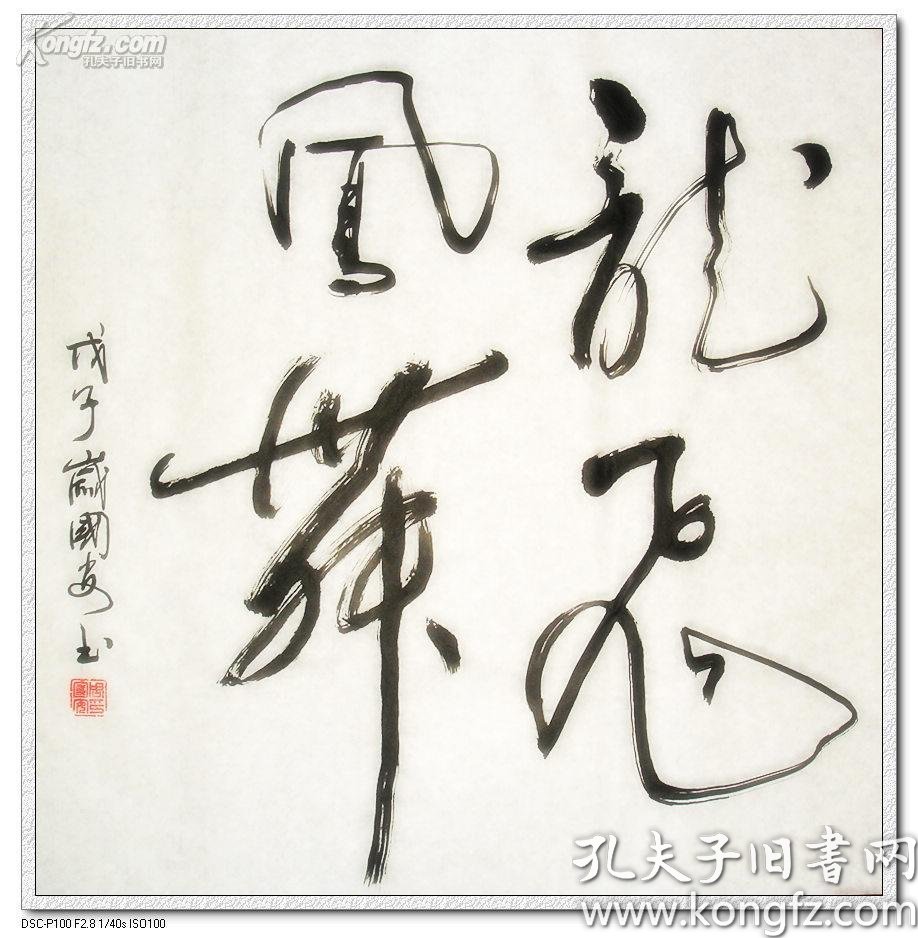 Kongfz.com
孔夫子旧书网
龍飛
鳳舞
戊子歲國安书
孔夫子旧書网
www.kongfz.com
DSC-P100 F2.8 1/40s ISO100